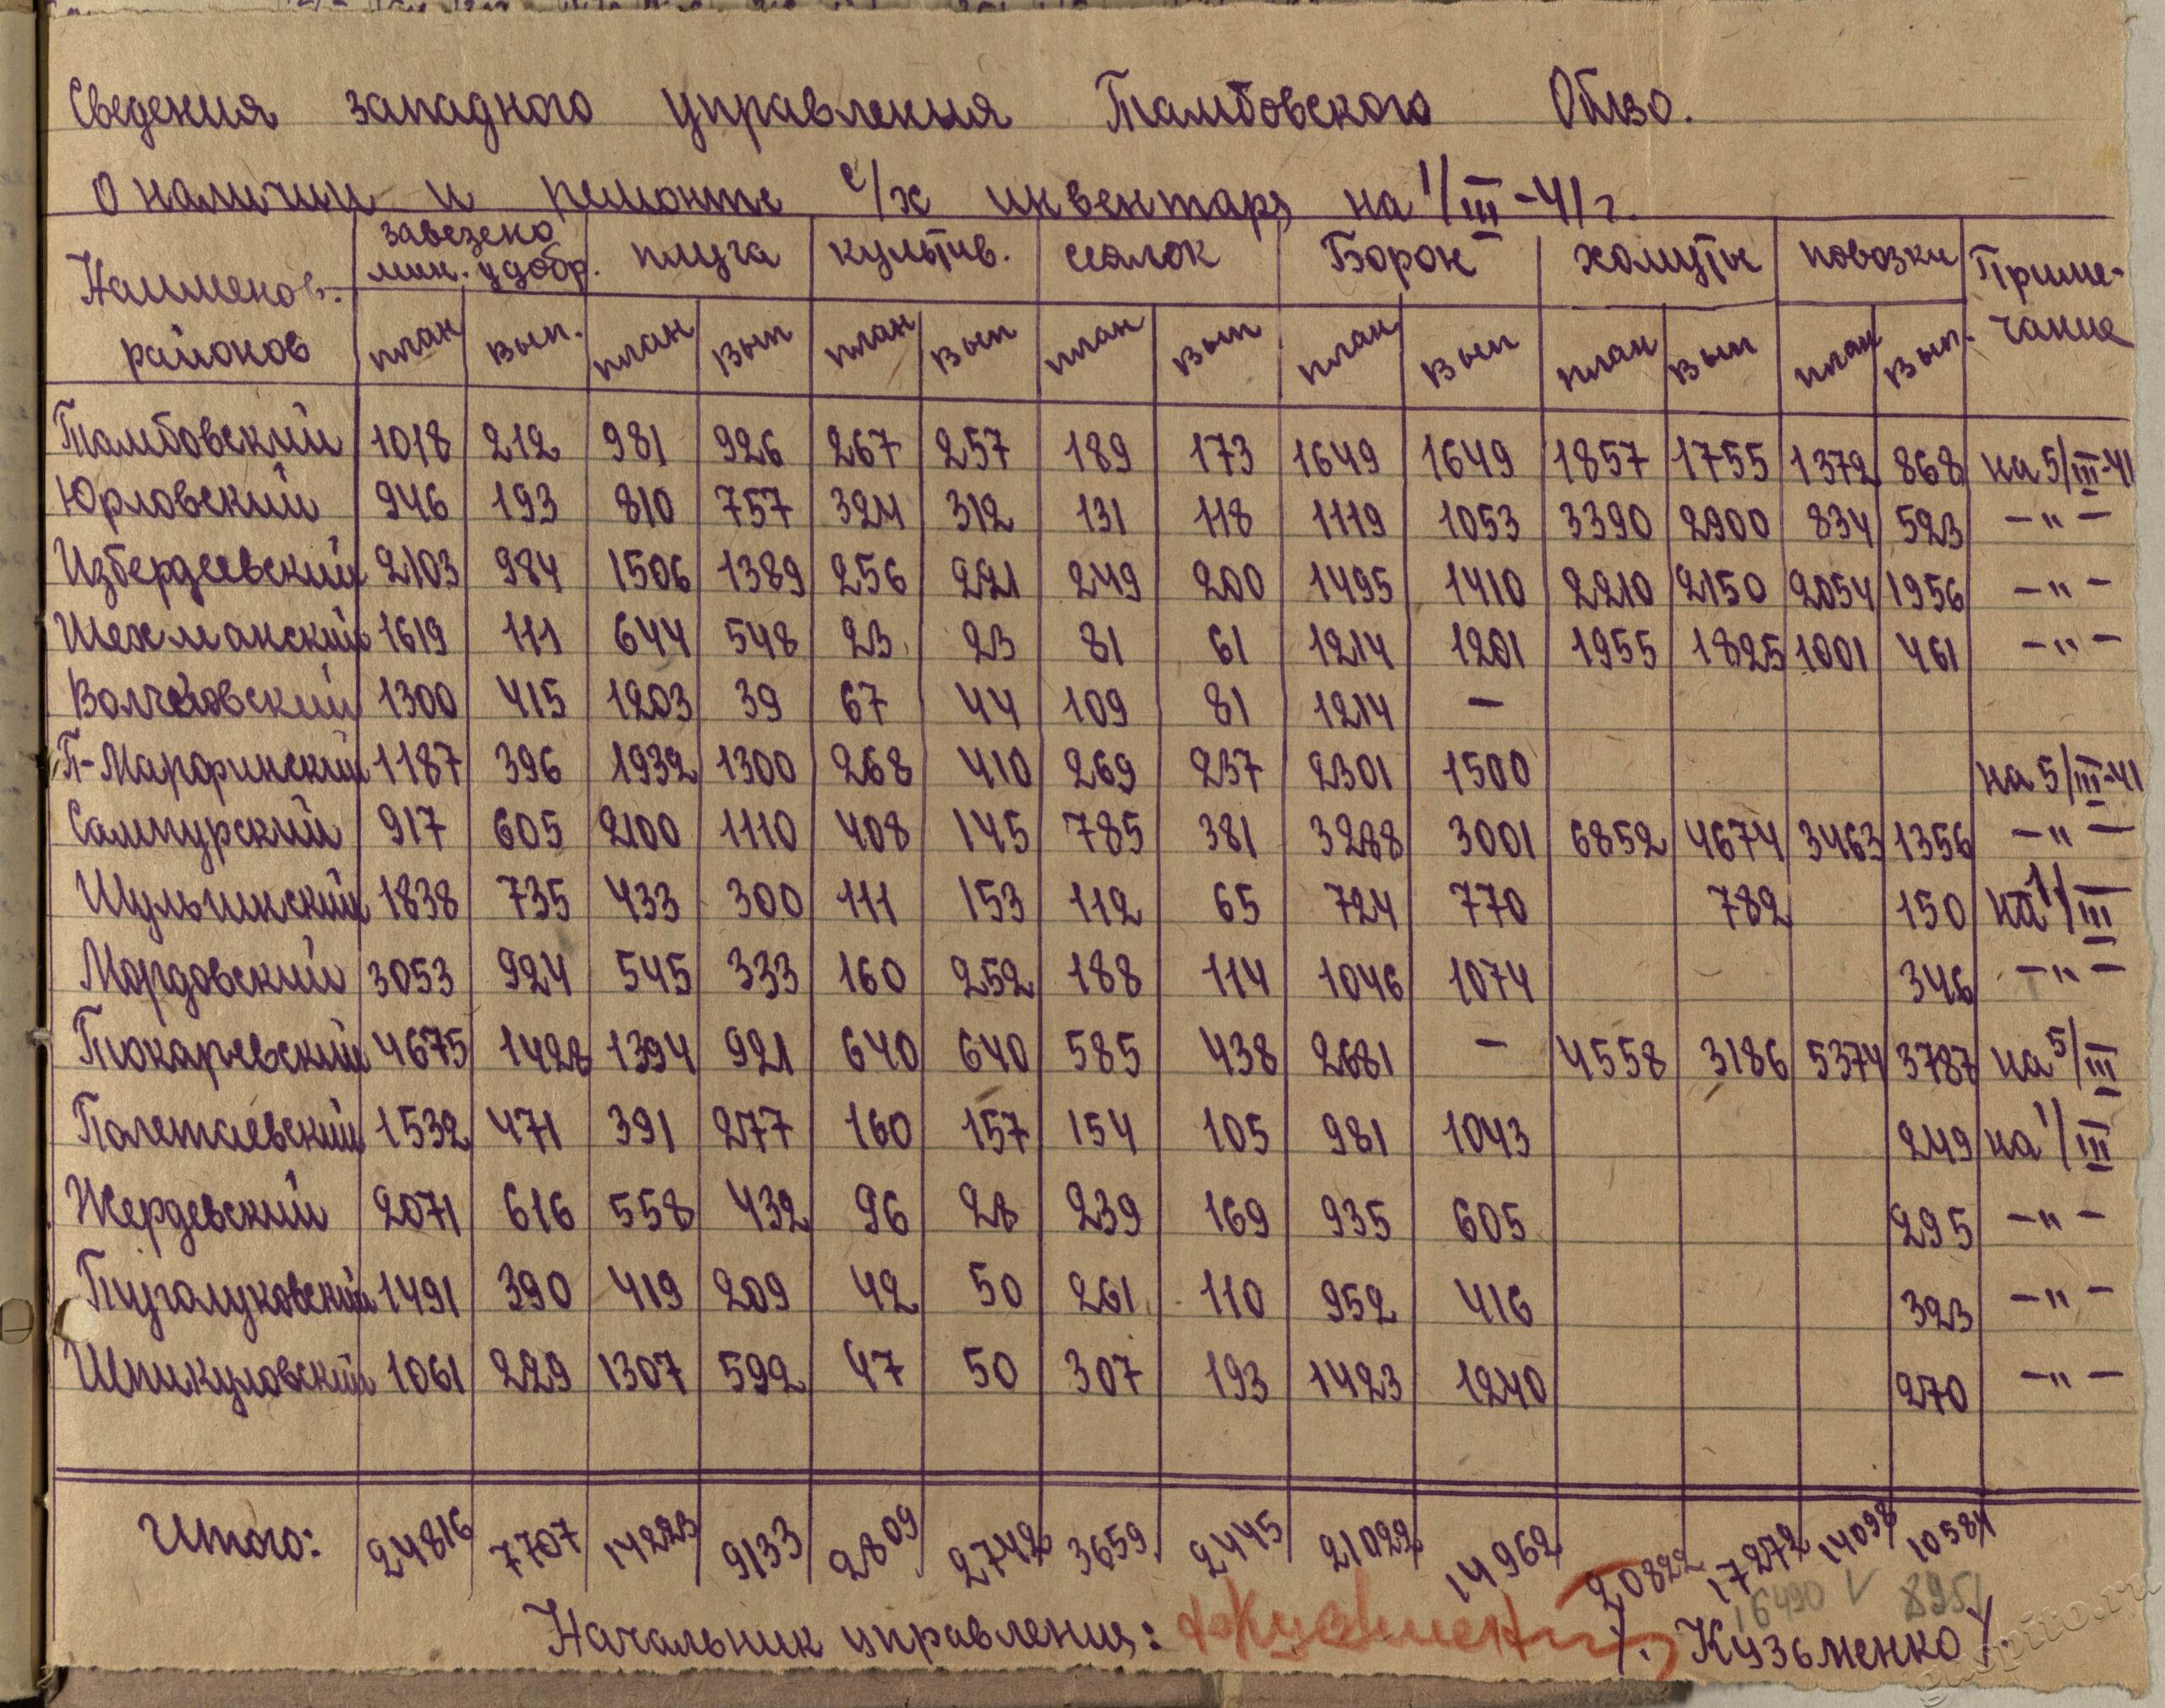 Сведения западного управления Тамбовского Облзо.
О наличии и ремонте с/х инвентаря на 1/III-41 г.
Наименов. районов завезено мин. удобр. плуга культив. сеялок Борон хомуты повозки Примечание
план вып. план вып план вып план вып план вып план вып план вып.
Тамбовский 1018 212 981 926 267 257 189 173 1649 1649 1857 1755 1372 868 на 5/III-41
Юрловский 946 193 810 757 324 312 131 118 1119 1053 3390 2900 834 523 —"—
Избердеевский 2103 984 1506 1389 256 221 249 200 1495 1410 2210 2150 2054 1956 —"—
Шехманский 1619 111 644 548 23 23 81 61 1214 1201 1955 1825 1001 461 —"—
Волчковский 1300 415 1203 39 67 44 109 81 1214 —
П-Марфинский 1187 396 1932 1300 268 410 269 237 2301 1500 на 5/III-41
Сампурский 917 605 2100 1110 408 145 785 381 3288 3001 6852 4674 3463 1356 —"—
Шульгинский 1838 735 433 300 111 153 112 65 724 770 782 150 на 1/III
Мордовский 3053 924 545 333 160 252 188 114 1046 1074 346 —"—
Токаревский 4675 1428 1394 921 640 640 585 438 2681 — 4558 3186 5374 3787 на 5/III
Полетаевский 1532 471 391 277 160 157 154 105 981 1043 249 на 1/III
Жердевский 2071 616 558 432 96 28 239 169 935 605 295 —"—
Туголуковский 1491 390 419 209 42 50 261 110 952 416 323 —"—
Шпикуловский 1061 229 1307 592 47 50 307 193 1423 1240 270 —"—
Итого: 24816 7707 14223 9133 2809 2742 3659 2445 21022 14962 20822 17272 14098 10584
16490 V 8951
Начальник управления: /. Кузьменко /.
gaspito.ru